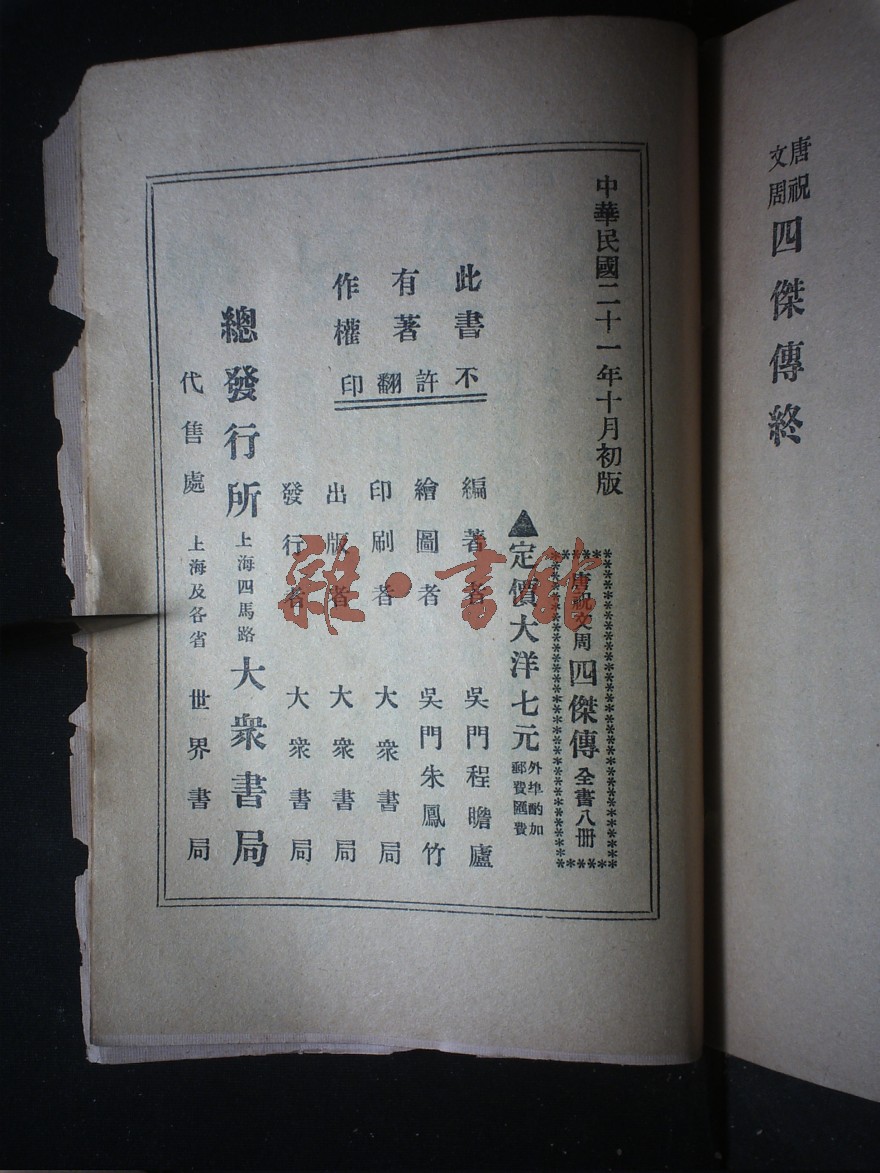 唐祝文周 四傑傳終
中華民國二十一年十月初版
唐祝文周 四傑傳 全書八冊
▲定價大洋七元 外埠酌加郵費匯費
此書有著作權
不許翻印
編著者 吳門程瞻廬
繪圖者 吳門朱鳳竹
印刷者 大衆書局
出版者 大衆書局
發行者 大衆書局
總發行所 上海四馬路 大衆書局
代售處 上海及各省 世界書局
雜·書館